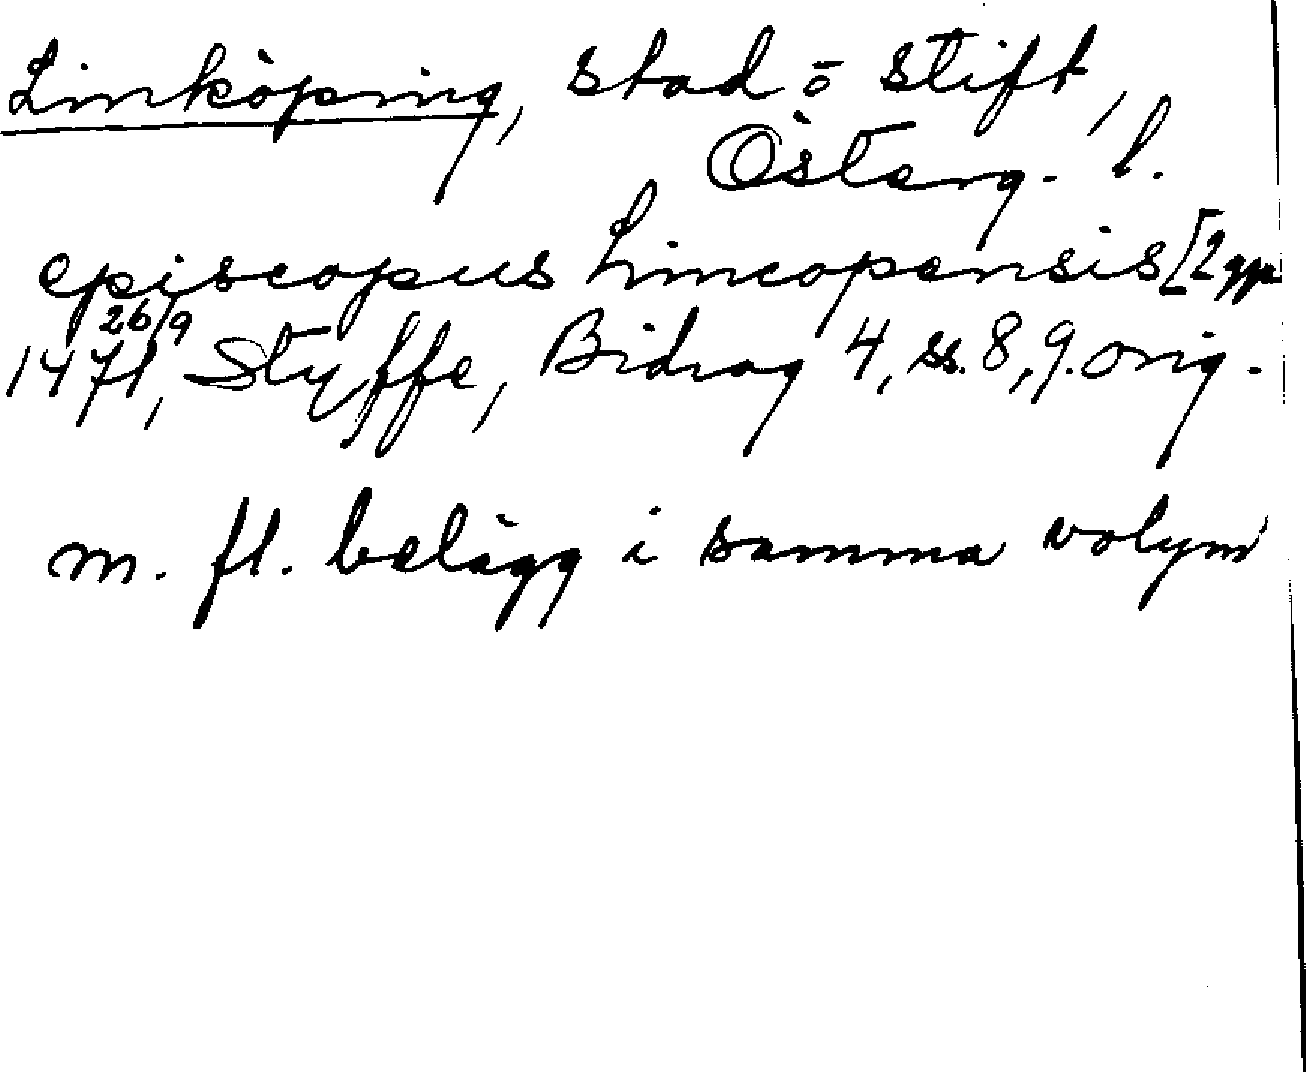 Linköping, stad o stift,
Österg. l.
episcopus Lincopensis [2 ggr
26/9
1471, Styffe, Bidrag 4, ss. 8, 9. orig.
m. fl. belägg i samma volym